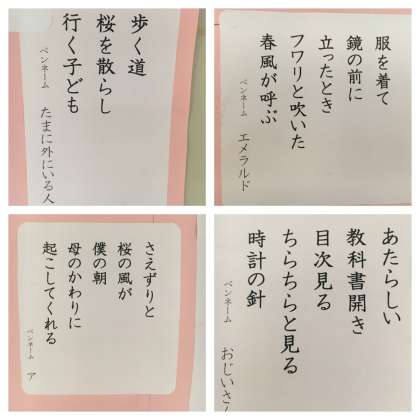 歩く道
桜を散らし
行く子ども
ペンネーム たまに外にいる人
服を着て
鏡の前に
立ったとき
フワリと吹いた
春風が呼ぶ
ペンネーム エメラルド
さえずりと
桜の風が
僕の朝
母のかわりに
起こしてくれる
ペンネーム ア
あたらしい
教科書開き
目次見る
ちらちらと見る
時計の針
ペンネーム おじいさん